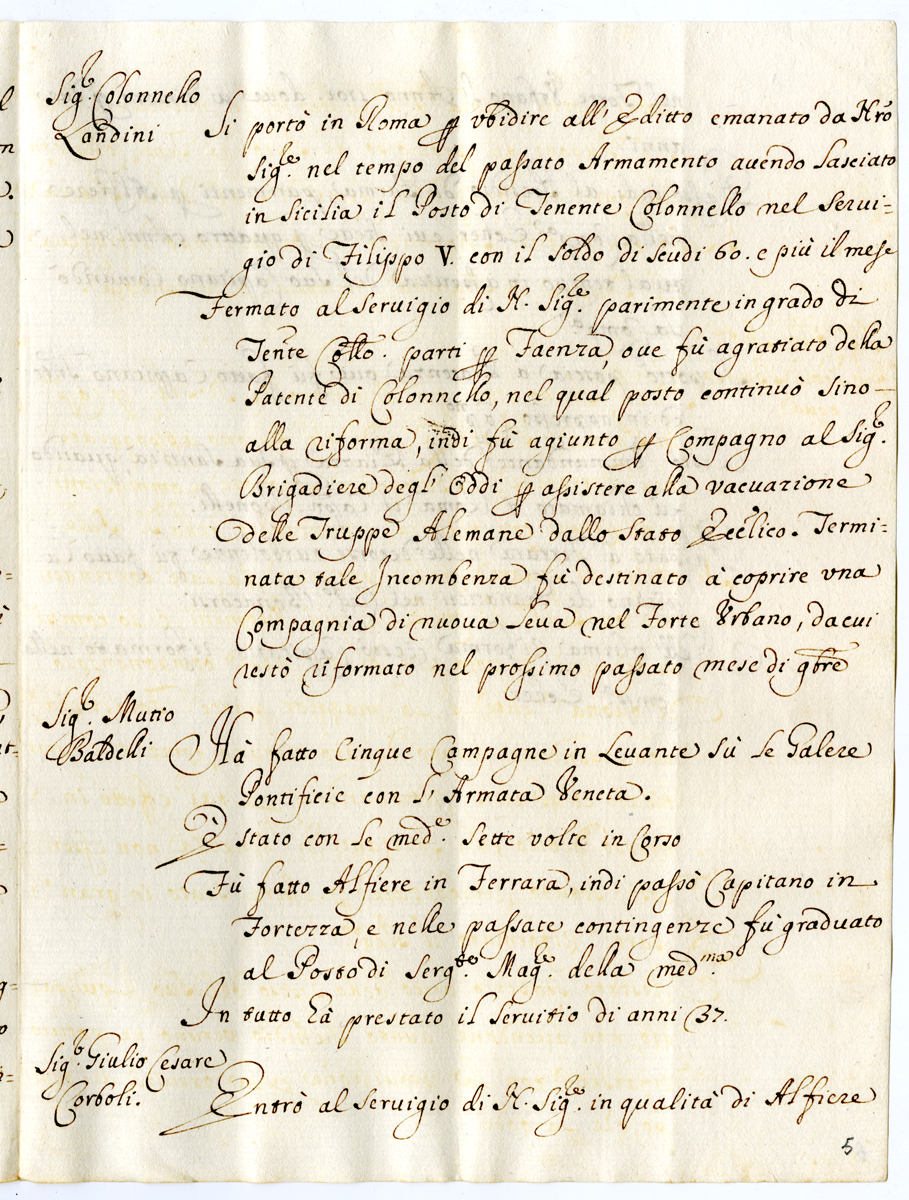 Sig.r Colonnello
Landini
Si portò in Roma p vbidire all' Editto emanato da Nrõ
Sig.re nel tempo del passato Armamento auendo lasciato
in Sicilia il Posto di Tenente Colonnello nel Serui=
gio di Filippo V. con il soldo di scudi 60. e più il mese
Fermato al Seruigio di N. Sig.re parimente in grado di
Tente Collo. parti p Faenza, oue fù agratiato della
Patente di Colonnello, nel qual posto continuò sino
alla riforma, indi fù agiunto p Compagno al Sig.r
Brigadiere degl' Oddi p assistere alla vacuazione
delle Truppe Alemane dallo Stato Ecclico. Termi=
nata tale Incombenza fù destinato à coprire vna
Compagnia di nuoua Leua nel Forte Vrbano, da cui
restò riformato nel prossimo passato mese di 9bre
Sig.r Mutio
Baldelli
Hà fatto Cinque Campagne in Leuante sù le Galere
Pontificie con l' Armata Veneta.
È stato con le med.e sette volte in Corso
Fù fatto Alfiere in Ferrara, indi passò Capitano in
Fortezza, e nelle passate contingenze fù graduato
al Posto di Serg.te Mag.re della med.ma
In tutto hà prestato il seruitio di anni 37.
Sig.r Giulio Cesare
Corboli.
Entrò al Seruigio di N. Sig.re in qualità di Alfiere
5